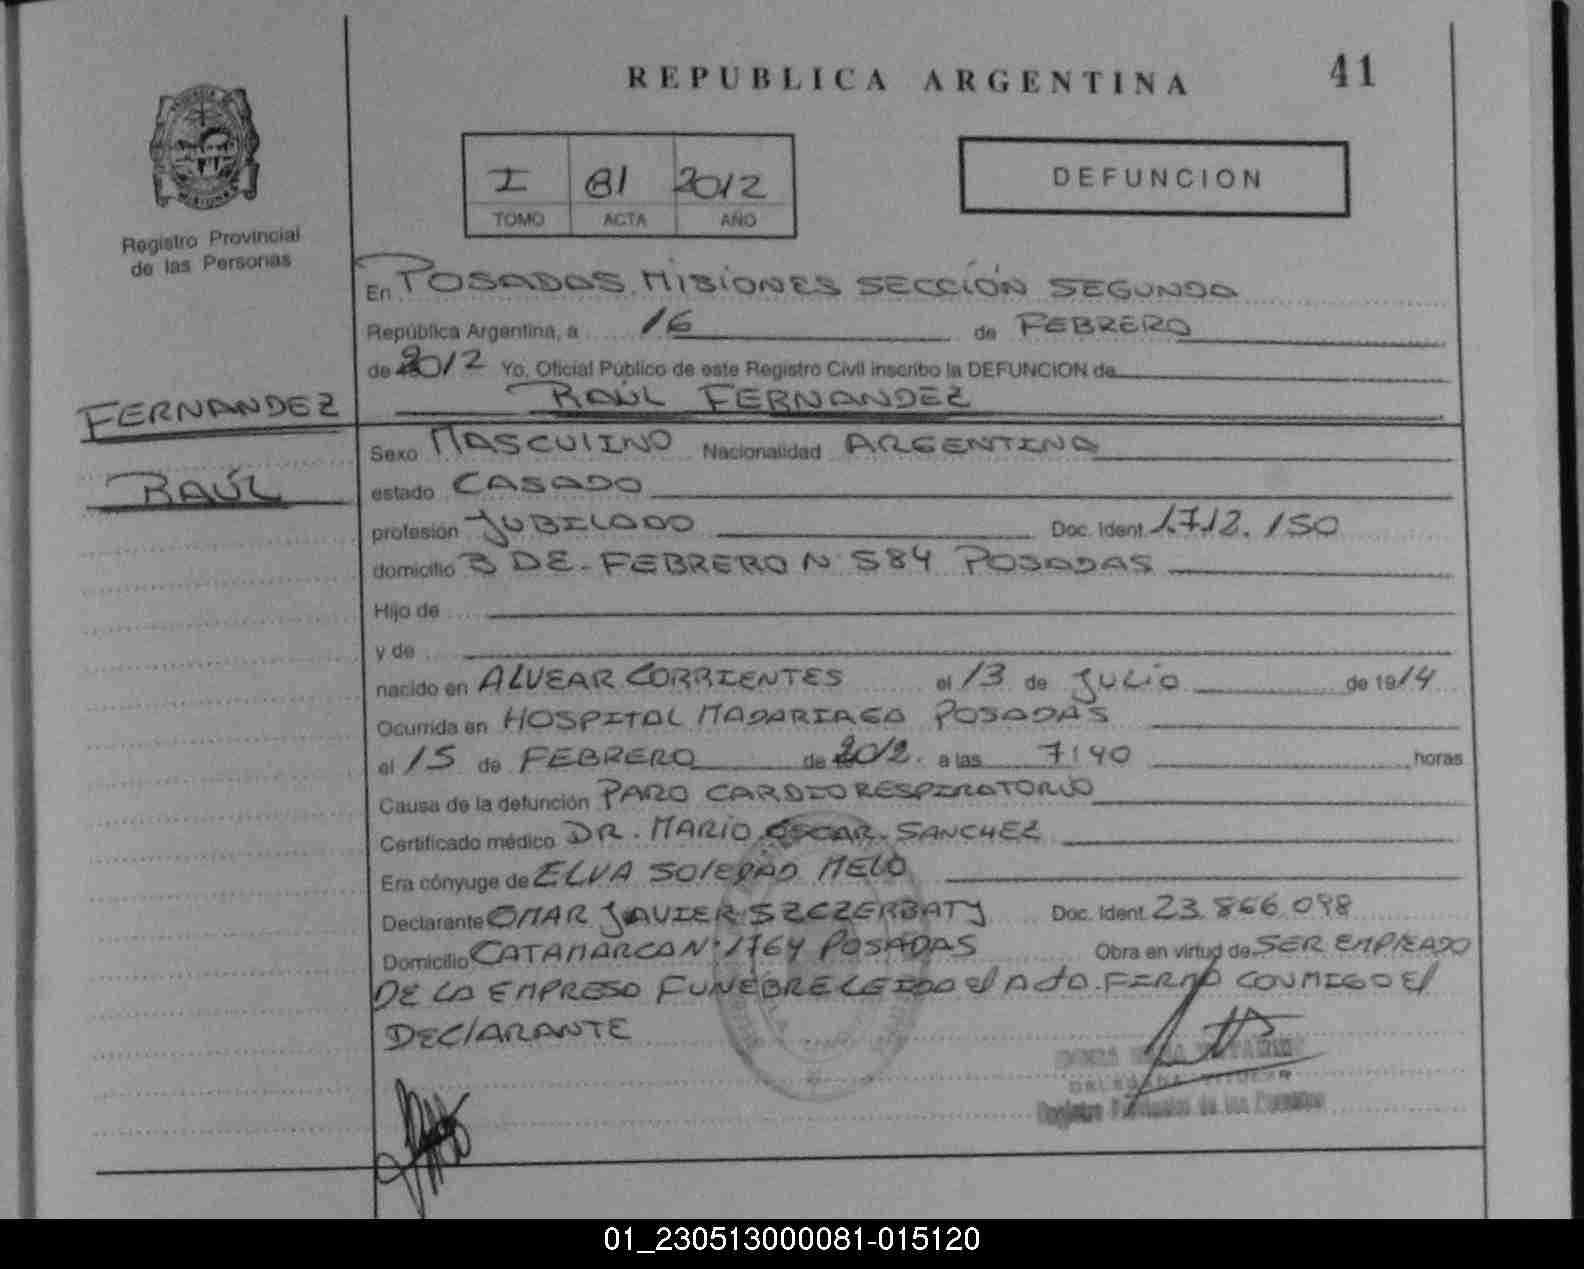 REPUBLICA ARGENTINA
41
I 81 2012
TOMO ACTA AÑO
DEFUNCION
Registro Provincial
de las Personas
En POSADAS MISIONES SECCIÓN SEGUNDA
República Argentina, a 16 de FEBRERO
de 2012 Yo, Oficial Público de este Registro Civil inscribo la DEFUNCION de
RAÚL FERNANDEZ
FERNANDEZ
RAÚL
Sexo MASCULINO Nacionalidad ARGENTINA
estado CASADO
profesión JUBILADO Doc. Ident. 1.712.150
domicilio 3 DE FEBRERO N 584 POSADAS
Hijo de
y de
nacido en ALVEAR CORRIENTES el 13 de JULIO de 1914
Ocurrida en HOSPITAL MADARIAGA POSADAS
el 15 de FEBRERO de 2012. a las 7:40 horas
Causa de la defunción PARO CARDIORESPIRATORIO
Certificado médico DR. MARIO OSCAR SANCHEZ
Era cónyuge de ELVA SOLEDAD MELO
Declarante OMAR JAVIER SZCZERBATY Doc. Ident. 23.866.098
Domicilio CATAMARCA N° 1764 POSADAS Obra en virtud de SER EMPLEADO
DE LA EMPRESA FUNEBRE LEIDA el Acta FIRMA CONMIGO El
DEClARANTE
Registro Provincial de las Personas
01_230513000081-015120